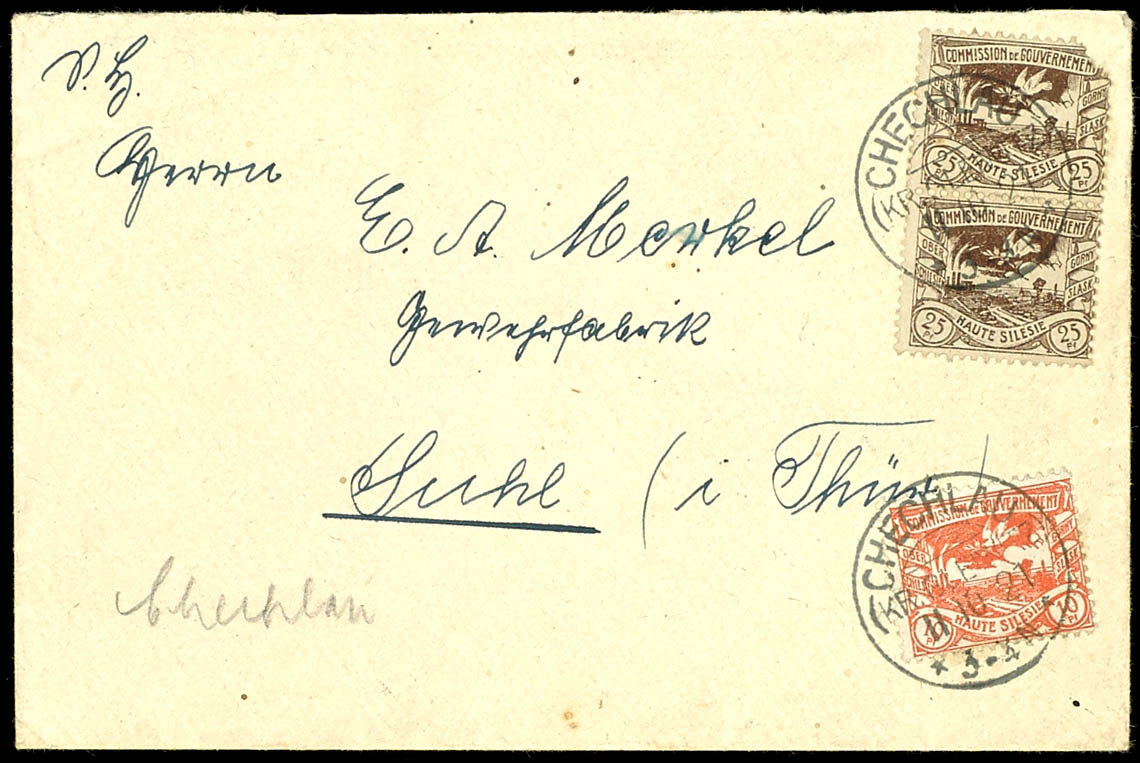 S. H.
Herrn
E. A. Merkel
Gewehrfabrik
Suhl (i Thür
Chechlau
COMMISSION DE GOUVERNEMENT
OBER
SCHLESIEN
GORNY
SLASK
25 Pf
HAUTE SILESIE
25 Pf
COMMISSION DE GOUVERNEMENT
OBER
SCHLESIEN
GORNY
SLASK
25 Pf
HAUTE SILESIE
25 Pf
CHECHLAU
(KR.
COMMISSION DE GOUVERNEMENT
OBER
SCHLESIEN
GORNY
SLASK
10 Pf
HAUTE SILESIE
10 Pf
CHECHLAU
(KR.
11 10 21
* 3-4 N *